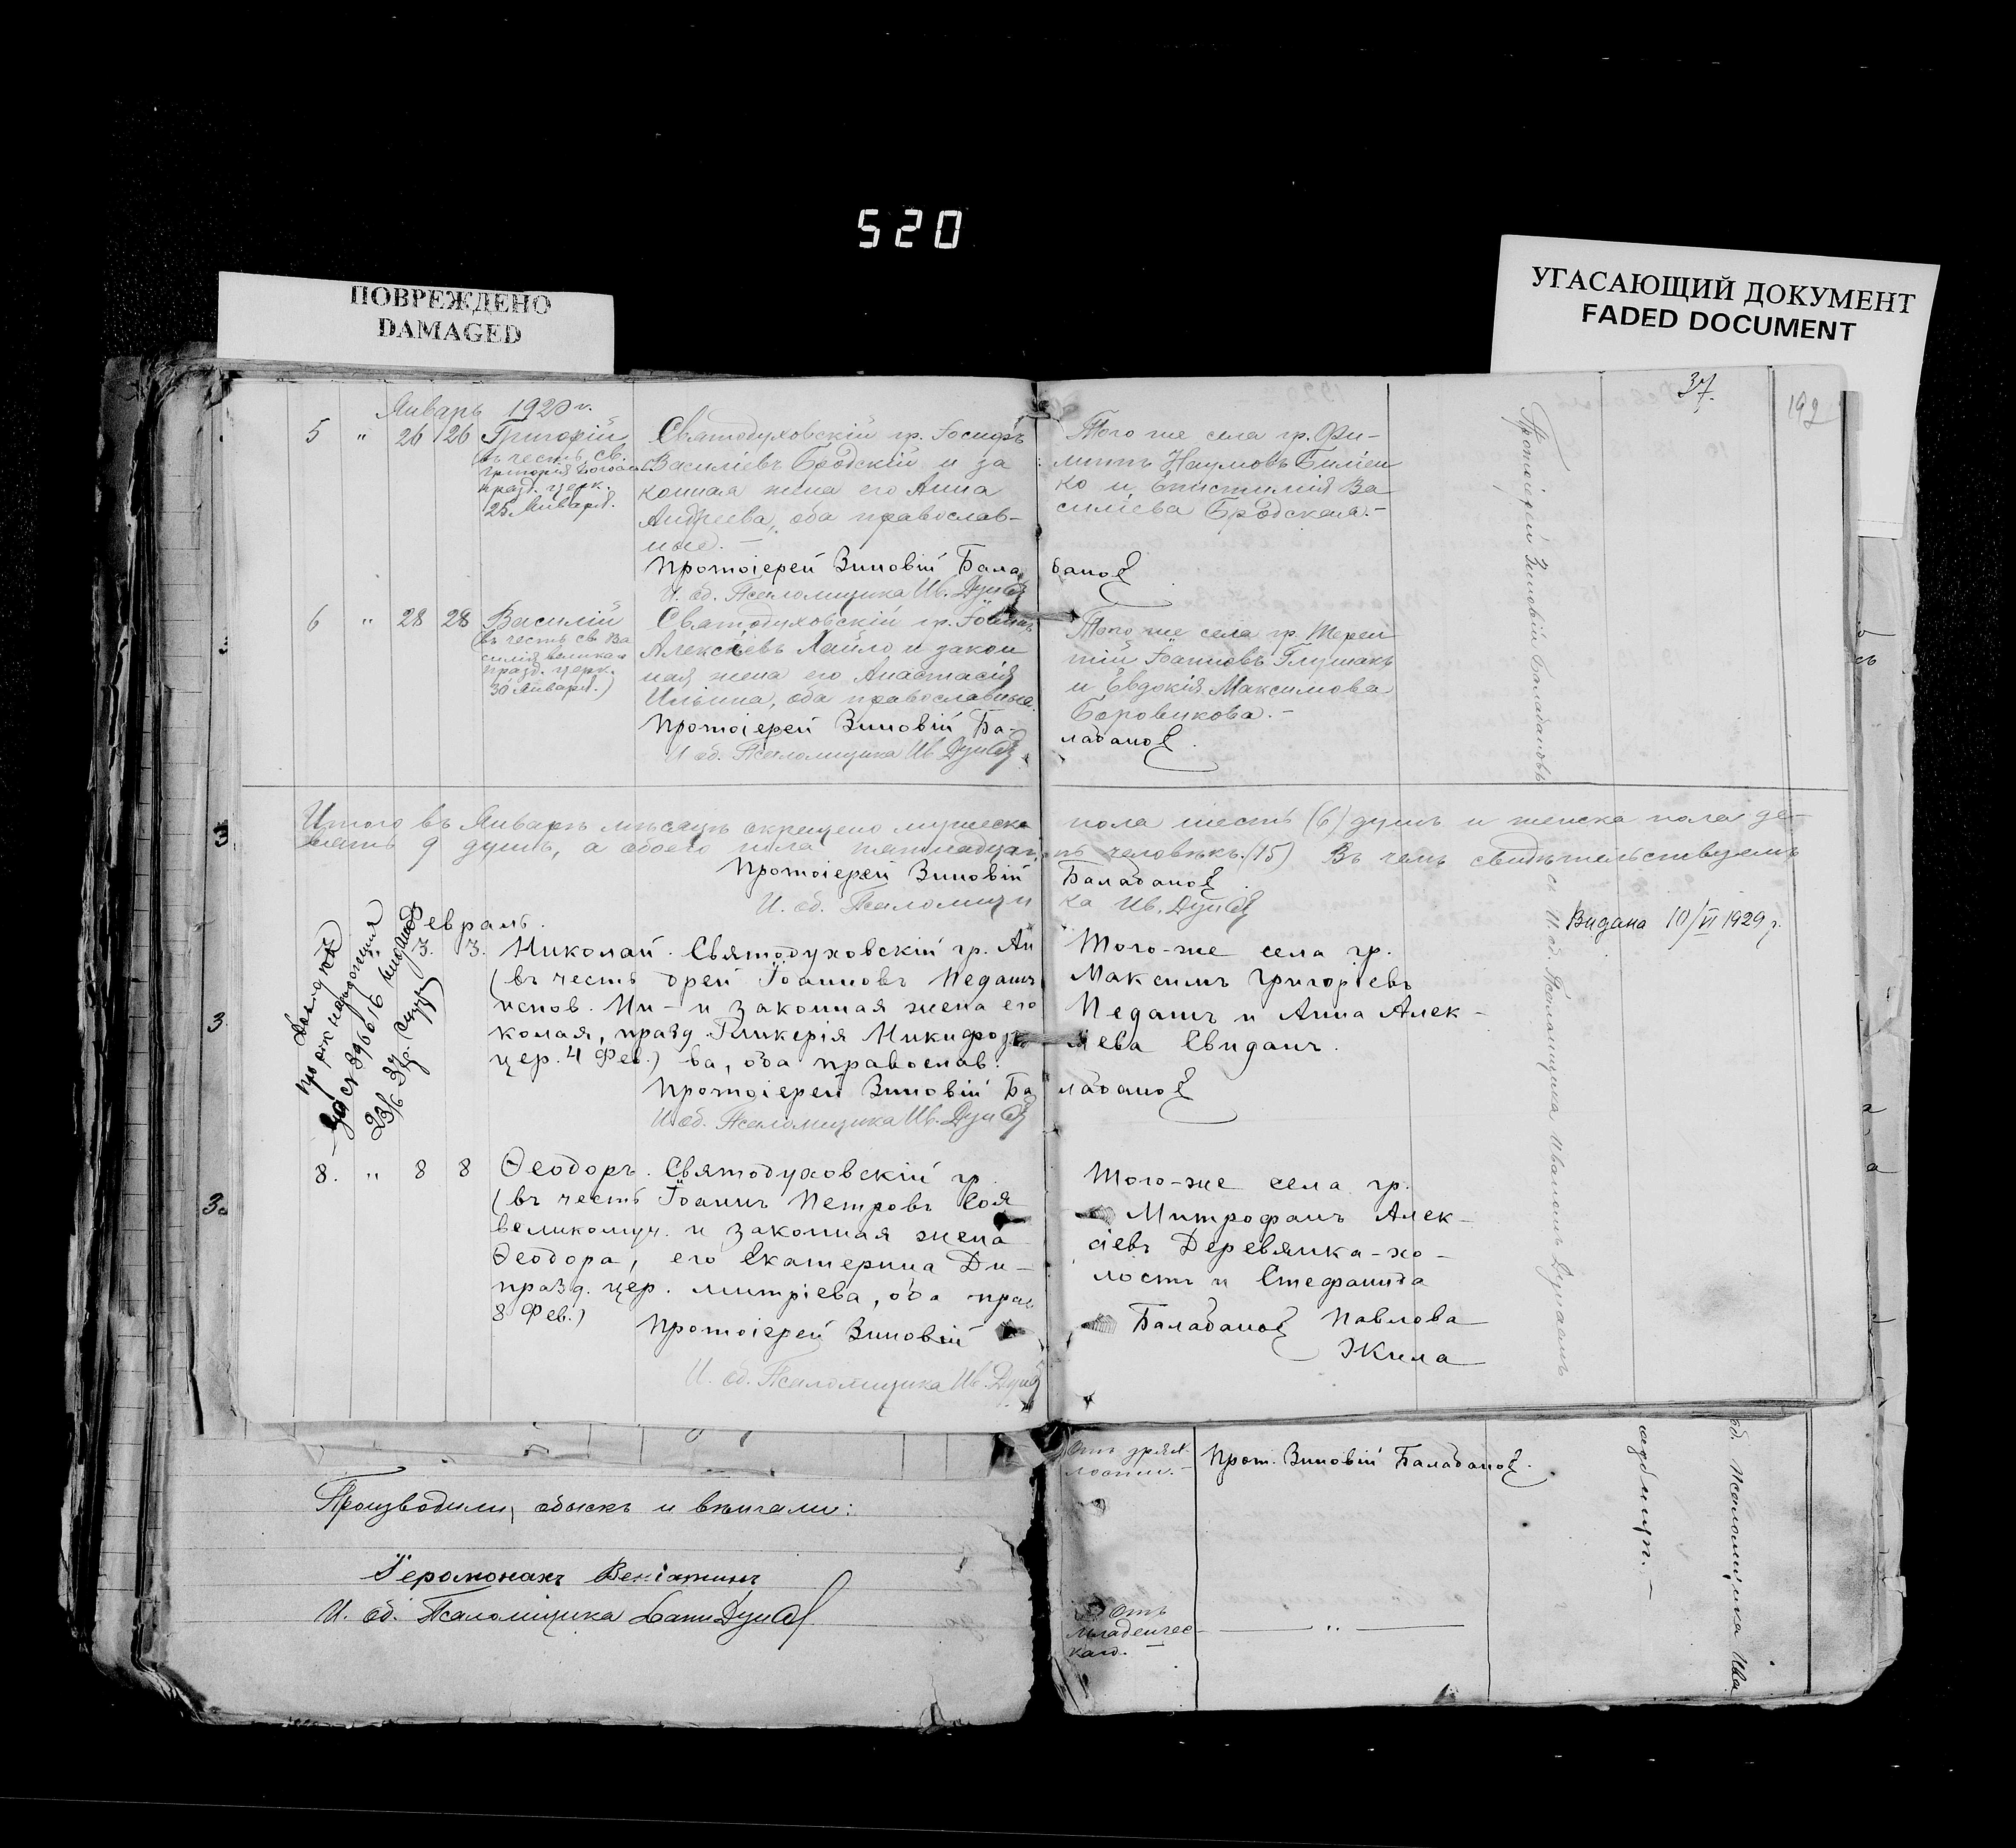 520
ПОВРЕЖДЕНО
DAMAGED
УГАСАЮЩИЙ ДОКУМЕНТ
FADED DOCUMENT
37.
192
Январь 1920 г.
5 " 26 26 Григорій
(въ честь св.
Григорія Богосл.
празд. церк.
25 Января.
Святодуховскій гр. Іосифъ
Василіевъ Бродскій и за
конная жена его Анна
Андреева, оба православ-
ные. -
Протоіерей Зиновій Бала
И. об. Псаломщика Ив.
Того же села гр. Фи-
липпъ Наумовъ Биліен
ко и Епистимія Ва
силіева Бродская. -
бановъ
6 " 28 28 Василій
(въ честь св. Ва
силія великаго
празд. церк.
30 Января.)
Святодуховскій гр. Іоаннъ
Алексіевъ Хайло и закон
ная жена его Анастасія
Ильина, оба православные.
Протоіерей Зиновій Ба-
И. об. Псаломщика Ив.
Того же села гр. Терен
тій Іоанновъ Глушакъ
и Евдокія Максимова
Боровикова. -
лабановъ
Протоіерей Зиновій Балабановъ
И. об. Псаломщика Иванъ
Итого въ Январѣ мѣсяцѣ окрещено мужеска пола шесть (6) душъ и женска пола де-
вять 9 душъ, а обоего пола пятнадцать человѣкъ. (15) Въ чемъ свидѣтельствуемъ
Протоіерей Зиновій Балабановъ
И. об. Псаломщика Ив.
Февраль.
Видана 10/VI 1929 г.
про народження
23/6 37
3. 3. Николай.
(въ честь
испов. Ни-
колая, празд.
цер. 4 Фев.)
Святодуховскій гр. Ан
дрей Іоанновъ Недашъ
и законная жена его
Гликерія Никифоро
ва, оба православ.
Протоіерей Зиновій Ба
И. об. Псаломщика Ив.
Того-же села гр.
Максимъ Григоріевъ
Недашъ и Анна Алек-
сіева Свидашъ.
лабановъ
8. " 8 8 Ѳеодоръ.
(въ честь
великомуч.
Ѳеодора,
празд. цер.
8 Фев.)
Святодуховскій гр.
Іоаннъ Петровъ Соя
и законная жена
его Екатерина Ди-
митріева, оба прав
Протоіерей Зиновій
И. об. Псаломщика Ив.
Того-же села гр.
Митрофанъ Алек-
сіевъ Деревянка-хо-
лостъ и Стефанида
Балабановъ Павлова
Жила
Производили обыскъ и вѣнчали:
Іеромонахъ Веніаминъ
И. об. Псаломщика
Отъ дрях
лости. -
Прот. Зиновій Балабановъ.
Отъ
младенчес-
каго. -
об. Псаломщика Ива